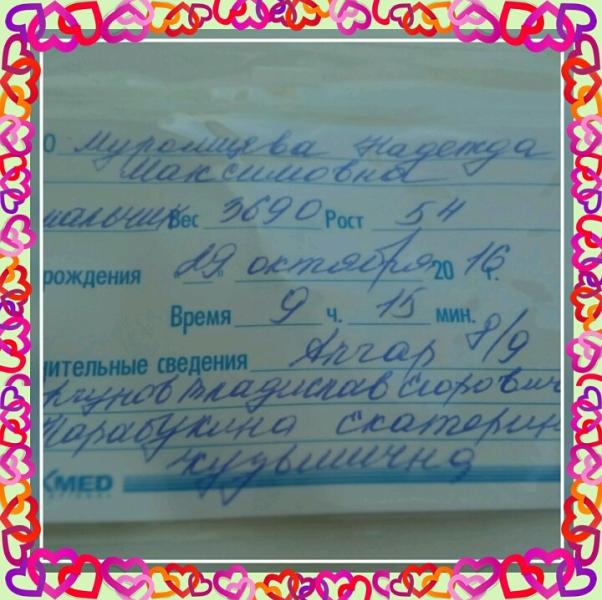 О Муромцева Надежда
Максимовна
мальчик Вес 3690 Рост 54
рождения 29 октября 20 16 г.
Время 9 ч. 15 мин.
нительные сведения Апгар 8/9
Владислав Егорович
Карабукина Екатерин
Кузьмична
MED